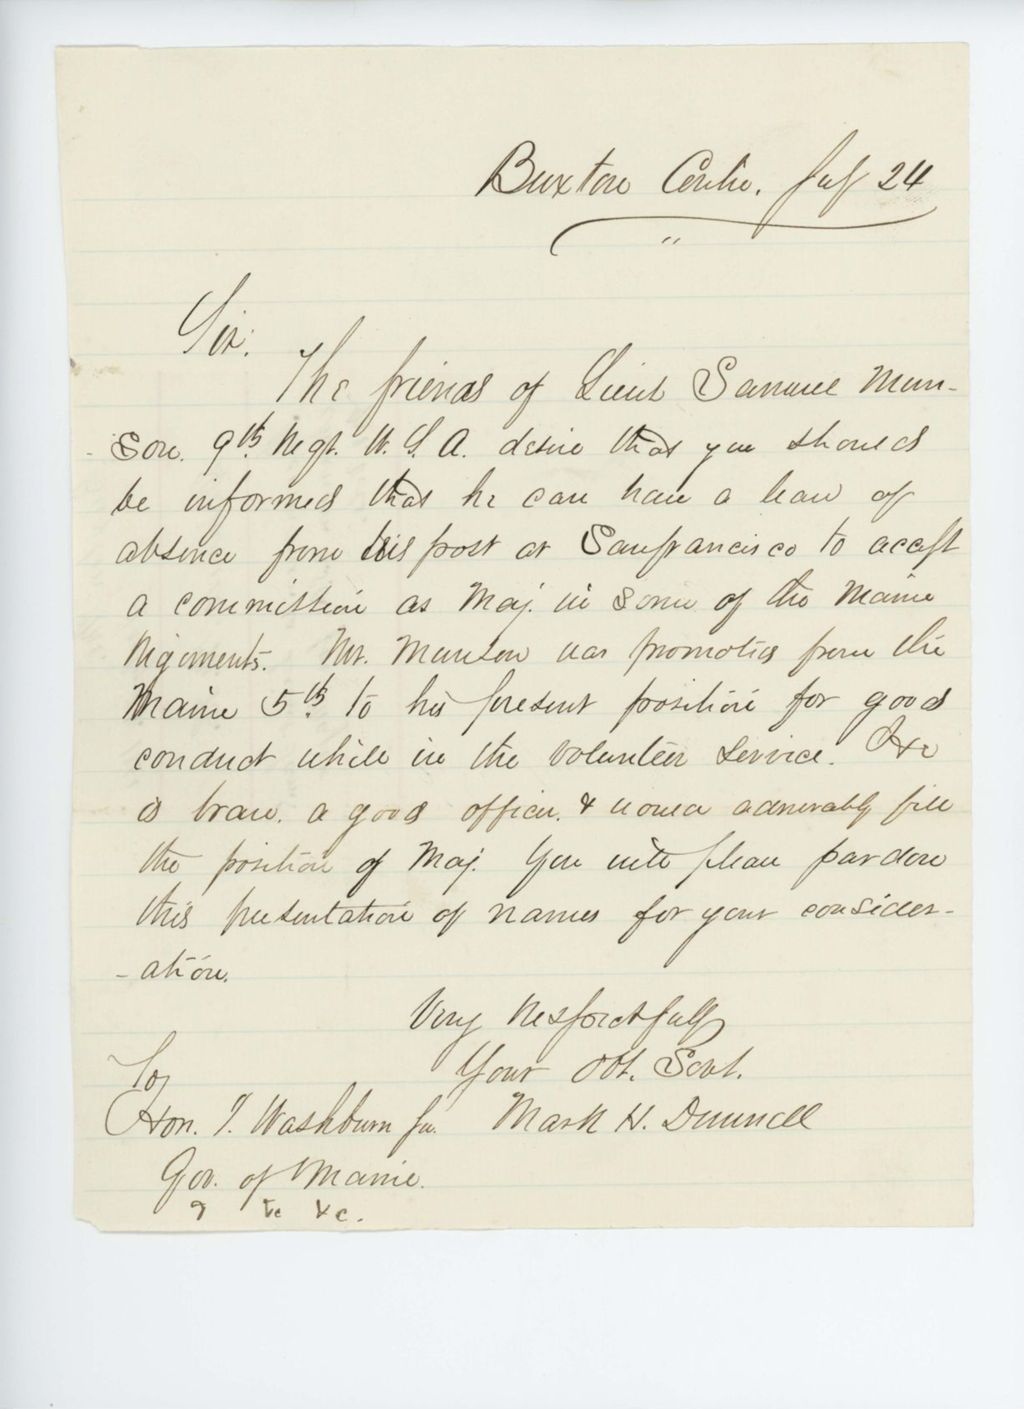 Buxton Centre. July 24
"
Sir:
The friends of Lieut Samuel Mun-
-son. 9th Regt. U. S. A. desire that you should
be informed that he can have a leave of
absence from his post at Sanfrancisco to accept
a commission as Maj. in some of the Maine
Regiments. Mr. Munson was promoted from the
Maine 5th. to his present position for good
conduct while in the volunteer service. He
is brave. a good officer. & would admirably fill
the position of Maj. You will please pardon
this presentation of names for your consider-
-ation.
Very Respectfully
Your Obt. Servt.
Mark H. Dunnell
To
Hon. I. Washburn Jr.
Gov. of Maine.
&c &c.